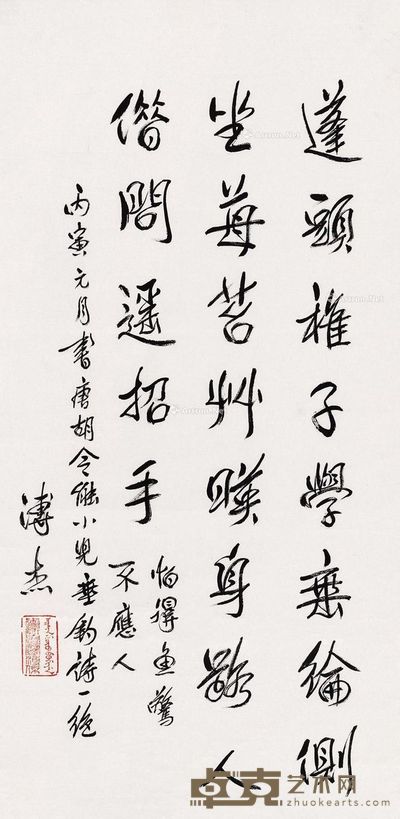 蓬頭稚子學垂綸側
坐莓苔艸暎身路人
借問遥招手
怕得魚驚
不應人
丙寅元月書唐胡令能小兒垂釣詩一絶
溥杰
卓克艺术网
zhuokearts.com